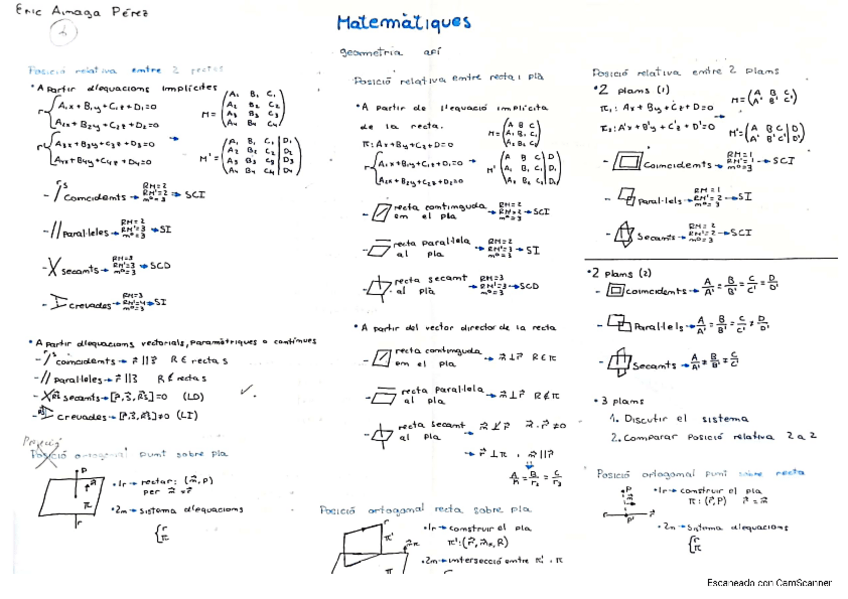 Eric Aznaga Pérez
Matemàtiques
geometria afí
Posició relativa entre 2 rectes
• A partir d'equacions implícites
r { A₁x + B₁y + C₁z + D₁ = 0
A₂x + B₂y + C₂z + D₂ = 0
r { A₃x + B₃y + C₃z + D₃ = 0
A₄x + B₄y + C₄z + D₄ = 0
M = ( A₁ B₁ C₁
A₂ B₂ C₂
A₃ B₃ C₃
A₄ B₄ C₄ )
M' = ( A₁ B₁ C₁ | D₁
A₂ B₂ C₂ | D₂
A₃ B₃ C₃ | D₃
A₄ B₄ C₄ | D₄ )
- Coincidents → RM=2 RM'=2 nº=3 → SCI
- // Paral·leles → RM=2 RM'=3 nº=3 → SI
- secants → RM=3 RM'=3 nº=3 → SCD
- creuades → RM=3 RM'=4 nº=3 → SI
• A partir d'equacions vectorials, paramètriques o contínues
- coincidents → r⃗ || s⃗ R ∈ recta s
- // paral·leles → r⃗ || s⃗ R ∉ recta s
- secants → [r⃗, s⃗, RS⃗] = 0 (LD)
- Creuades → [r⃗, s⃗, RS⃗] ≠ 0 (LI)
Posició ortogonal punt sobre pla
• 1r → recta r: (n⃗, P)
per n⃗ = r⃗
• 2n → sistema d'equacions
{ r
π
Posició relativa entre recta i pla
• A partir de l'equació implícita
de la recta.
π: Ax + By + Cz + D = 0
r { A₁x + B₁y + C₁z + D₁ = 0
A₂x + B₂y + C₂z + D₂ = 0
M = ( A B C
A₁ B₁ C₁
A₂ B₂ C₂ )
M' ( A B C | D
A₁ B₁ C₁ | D₁
A₂ B₂ C₂ | D₂ )
- recta continguda en el pla → RM=2 RM'=2 nº=3 → SCI
- recta paral·lela al pla → RM=2 RM'=3 nº=3 → SI
- recta secant al pla → RM=3 RM'=3 nº=3 → SCD
• A partir del vector director de la recta
- recta continguda en el pla → n⃗ ⊥ r⃗ R ∈ π
- recta paral·lela al pla → n⃗ ⊥ r⃗ R ∉ π
- recta secant al pla → n⃗ ⊥̸ r⃗ n⃗ · r⃗ ≠ 0
→ r⃗ ⊥ π , n⃗ || r⃗
A/r₁ = B/r₂ = C/r₃
Posició ortogonal recta sobre pla
• 1r → construir el pla
π': (r⃗, n⃗π, R)
• 2n → intersecció entre π' i π
Posició relativa entre 2 plans
• 2 plans (1)
π₁: Ax + By + Cz + D = 0
π₂: A'x + B'y + C'z + D' = 0
M = ( A B C
A' B' C' )
M' = ( A B C | D
A' B' C' | D' )
- Coincidents → RM=1 RM'=1 nº=3 → SCI
- Paral·lels → RM=1 RM'=2 nº=3 → SI
- Secants → RM=2 RM'=2 nº=3 → SCI
• 2 plans (2)
- coincidents → A/A' = B/B' = C/C' = D/D'
- Paral·lels → A/A' = B/B' = C/C' ≠ D/D'
- Secants → A/A' ≠ B/B' ≠ C/C'
• 3 plans
1. Discutir el sistema
2. Comparar posició relativa 2 a 2
Posició ortogonal punt sobre recta
• 1r → construir el pla
π: (r⃗, P) r⃗ = n⃗
• 2n → Sistema d'equacions
{ r
π
Escaneado con CamScanner